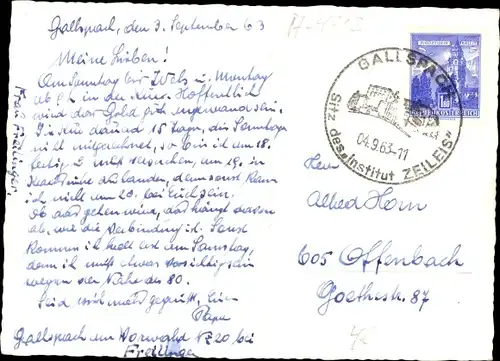 Gallspach, den 3. September 63
Meine Lieben!
Am Sonntag bis Wels u. Montag
ab 9h in der Kur. Hoffentlich
wird das Geld gut angewandt sein.
Die Kur dauert 15 Tage, die Sonntage
nicht mitgerechnet, so bin ich am 18.
fertig u. will versuchen, am 19. in
zu landen, denn sonst kann
ich nicht am 20. bei Euch sein.
Ob das gehen wird, das hängt davon
ab, wie die Verbindung ist. Sonst
komme ich halt erst am Samstag,
denn ich muß etwas vorsichtig sein
wegen der Nähe der 80.
Seid nochmals gegrüßt, Euer
Papa
Gallspach am Vorwald Nr 20 bei
Freilinger
Frau Freilinger
A-4513
GALLSPACH
04.9.63-11
Sitz des „Institut ZEILEIS"
REPUBLIK ÖSTERREICH
Herrn
Alfred Horn
605 Offenbach
Goethestr. 87